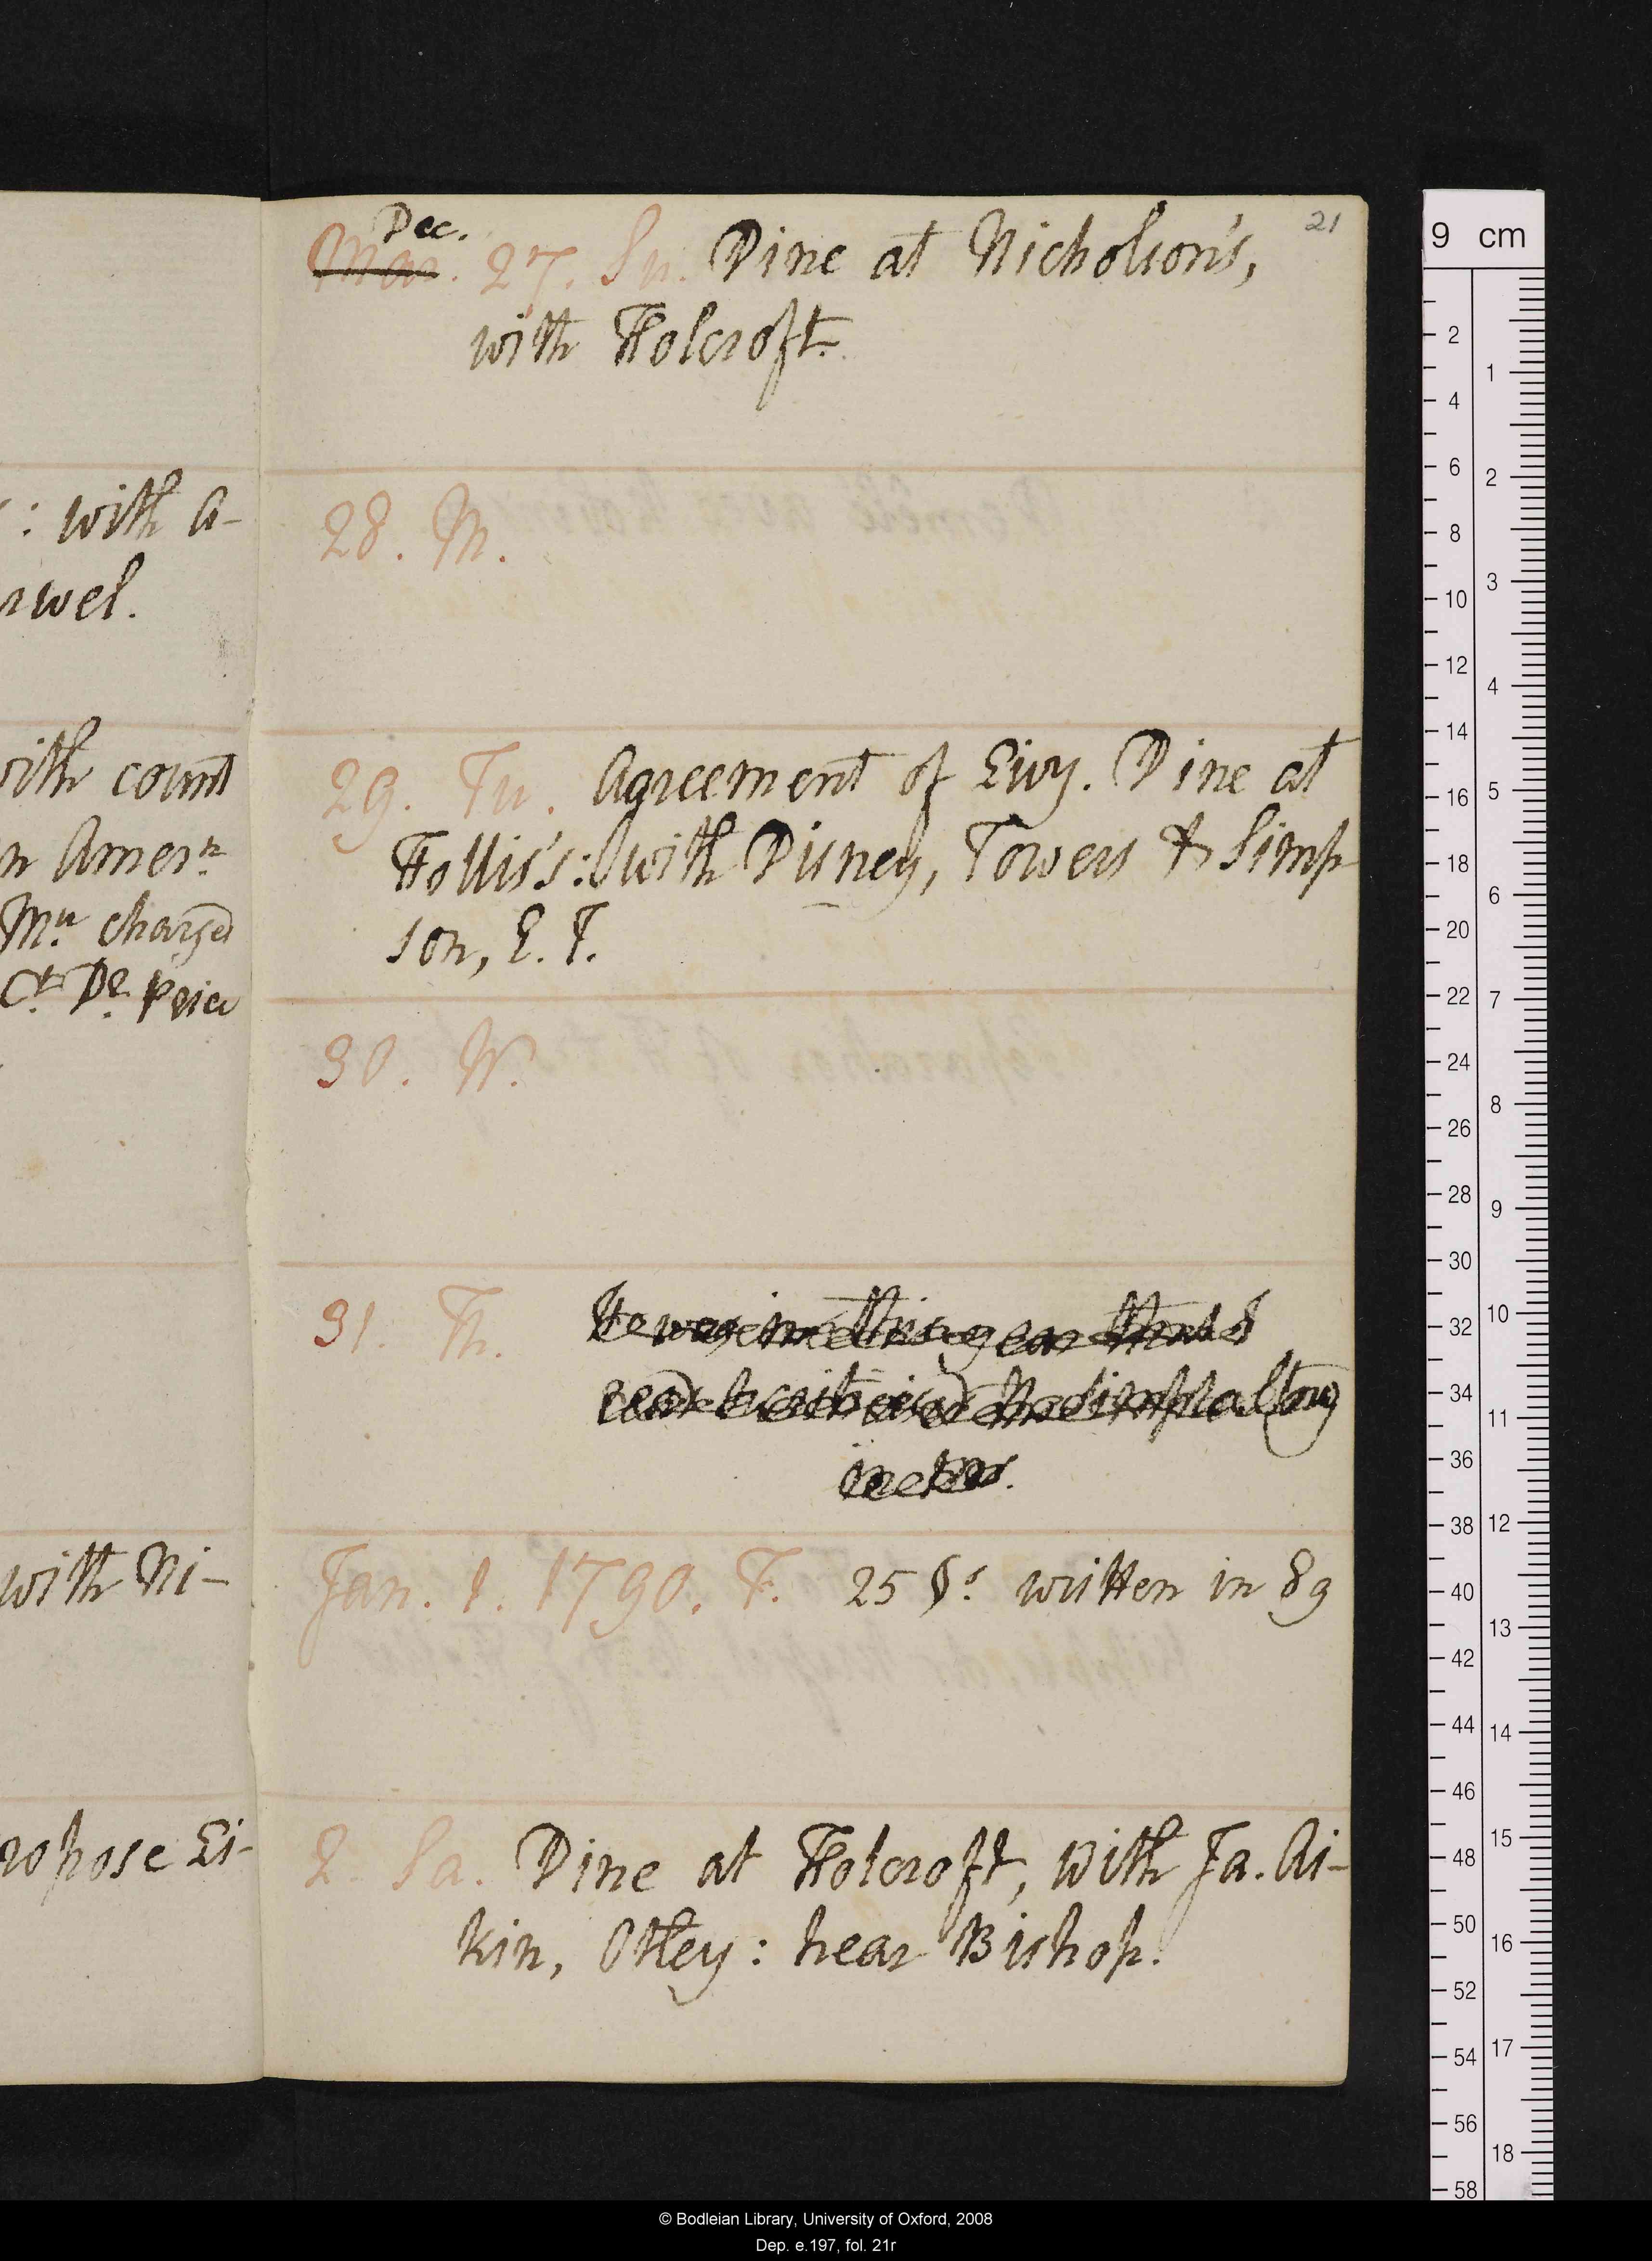 : with A-
rwel.
with count
n Amern
Mr. charged
Ct. De Peia
with Ni-
ropose Li-
21
Dec.
Mar. 27. Su. Dine at Nicholson's,
with Holcroft.
28. M.
29. Tu. Agreement of Livy. Dine at
Hollis's: with Disney, Towers & Simp
son, E. T.
30. W.
31. Th.
Jan. 1. 1790. F. 25 §s. written in 89
2. Sa. Dine at Holcroft, with Ja. Ai-
kin, Otley: hear Bishop.
9 cm
2
4
6
8
10
12
14
16
18
20
22
24
26
28
30
32
34
36
38
40
42
44
46
48
50
52
54
56
58
1
2
3
4
5
6
7
8
9
10
11
12
13
14
15
16
17
18
© Bodleian Library, University of Oxford, 2008
Dep. e.197, fol. 21r